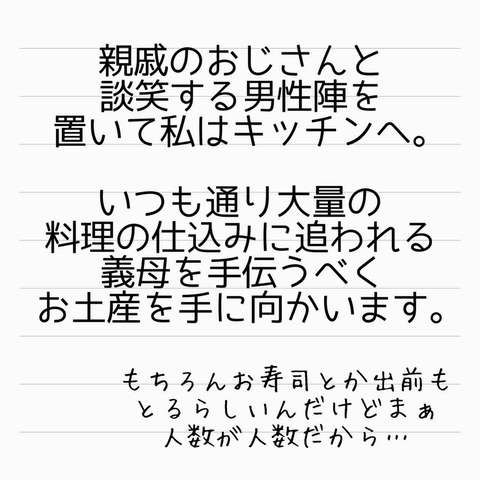 親戚のおじさんと
談笑する男性陣を
置いて私はキッチンへ。
いつも通り大量の
料理の仕込みに追われる
義母を手伝うべく
お土産を手に向かいます。
もちろんお寿司とか出前も
とるらしいんだけどまぁ
人数が人数だから…